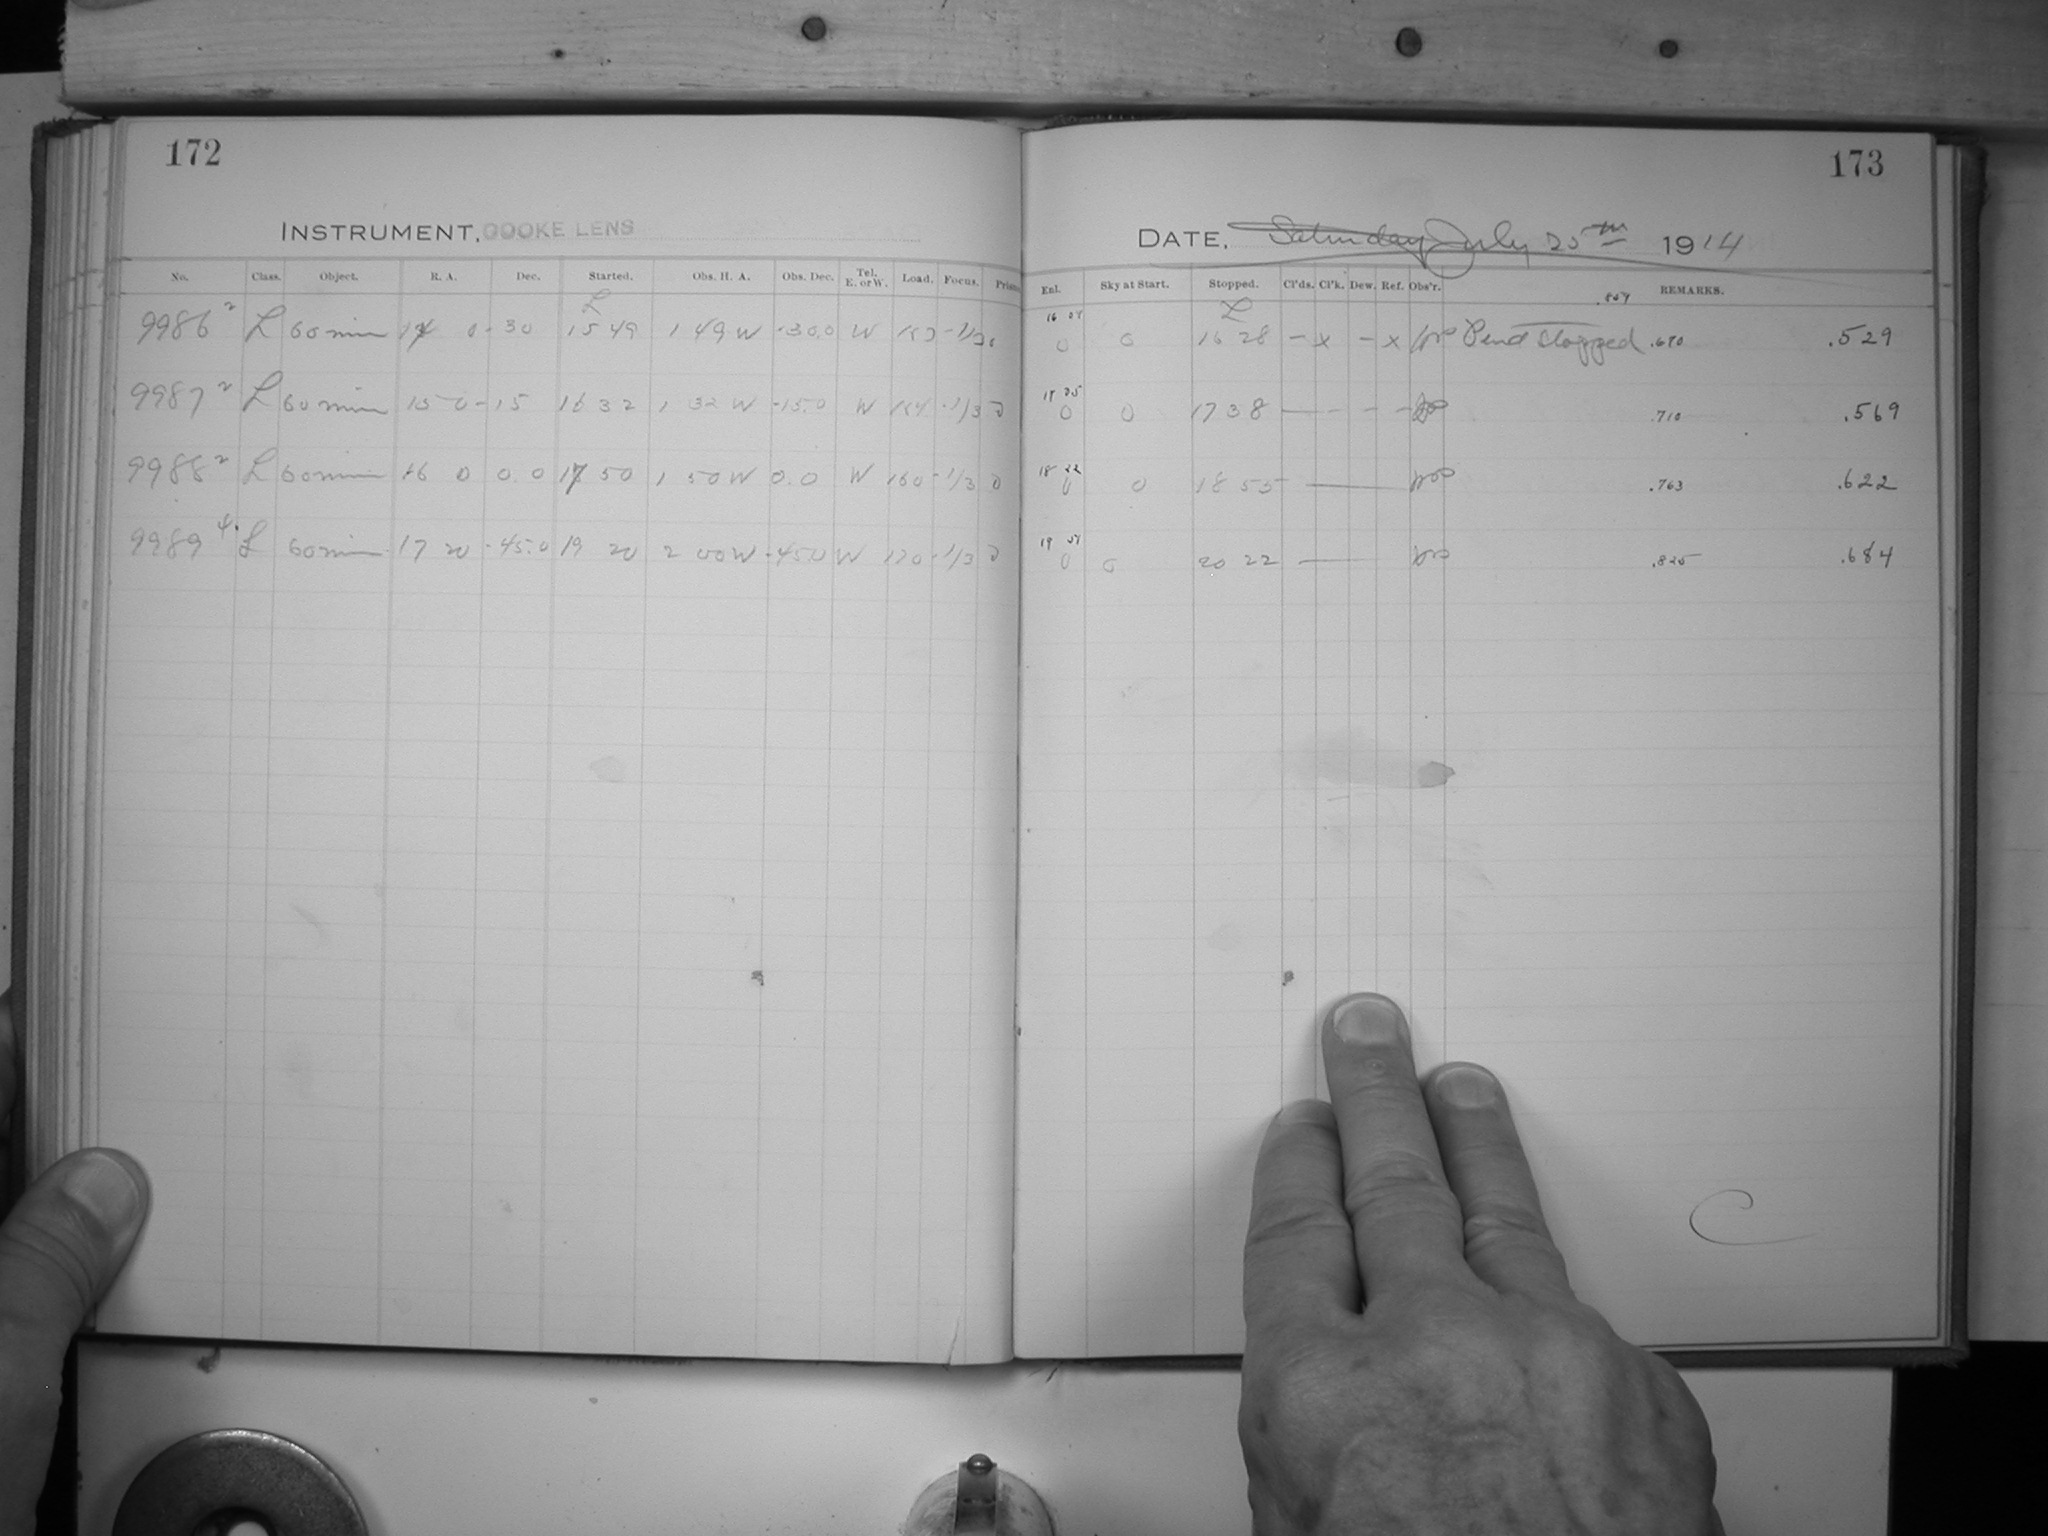 172
INSTRUMENT, COOKE LENS
No. Class. Object. R. A. Dec. Started. Obs. H. A. Obs. Dec. Tel. E. or W. Load. Focus. Prism
L
9986 2 L 60 min 14 0 -30 15 49 1 49 W -30.0 W -1/3 0
9987 2 L 60 min 15 0 -15 16 32 1 32 W -15.0 W -1/3 0
9988 2 L 60 min 16 0 0.0 17 50 1 50 W 0.0 W 160 -1/3 0
9989 4 L 60 min 17 20 -45.0 19 20 2 00 W -45.0 W -1/3 0
173
DATE, Saturday July 25th 1914
Enl. Sky at Start. Stopped. Cl'ds. Cl'k. Dew. Ref. Obs'r. REMARKS.
L
0 0 16 28 – x – x Pend stopped .690 .529
0 0 17 38 — - - - .710 .569
18 22
0 0 18 55 — .763 .622
0 0 20 22 — .825 .684
C